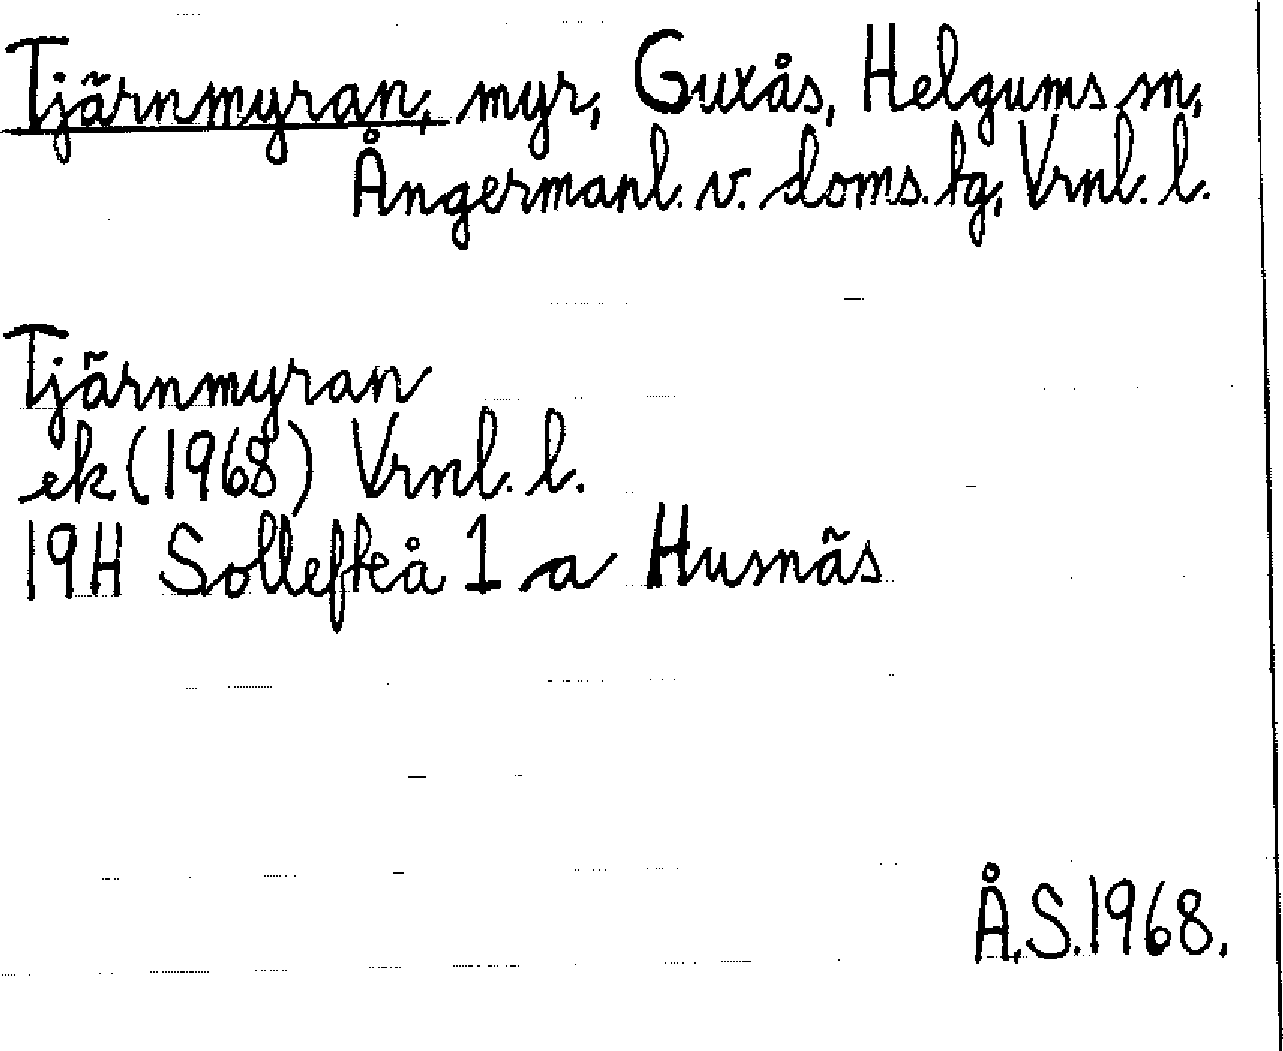 Tjärnmyran, myr, Guxås, Helgums sn,
Ångermanl. v. doms. tg, Vrnl. l.
Tjärnmyran
ek (1968) Vrnl. l.
19H Sollefteå 1 a Husnäs
Å.S. 1968.